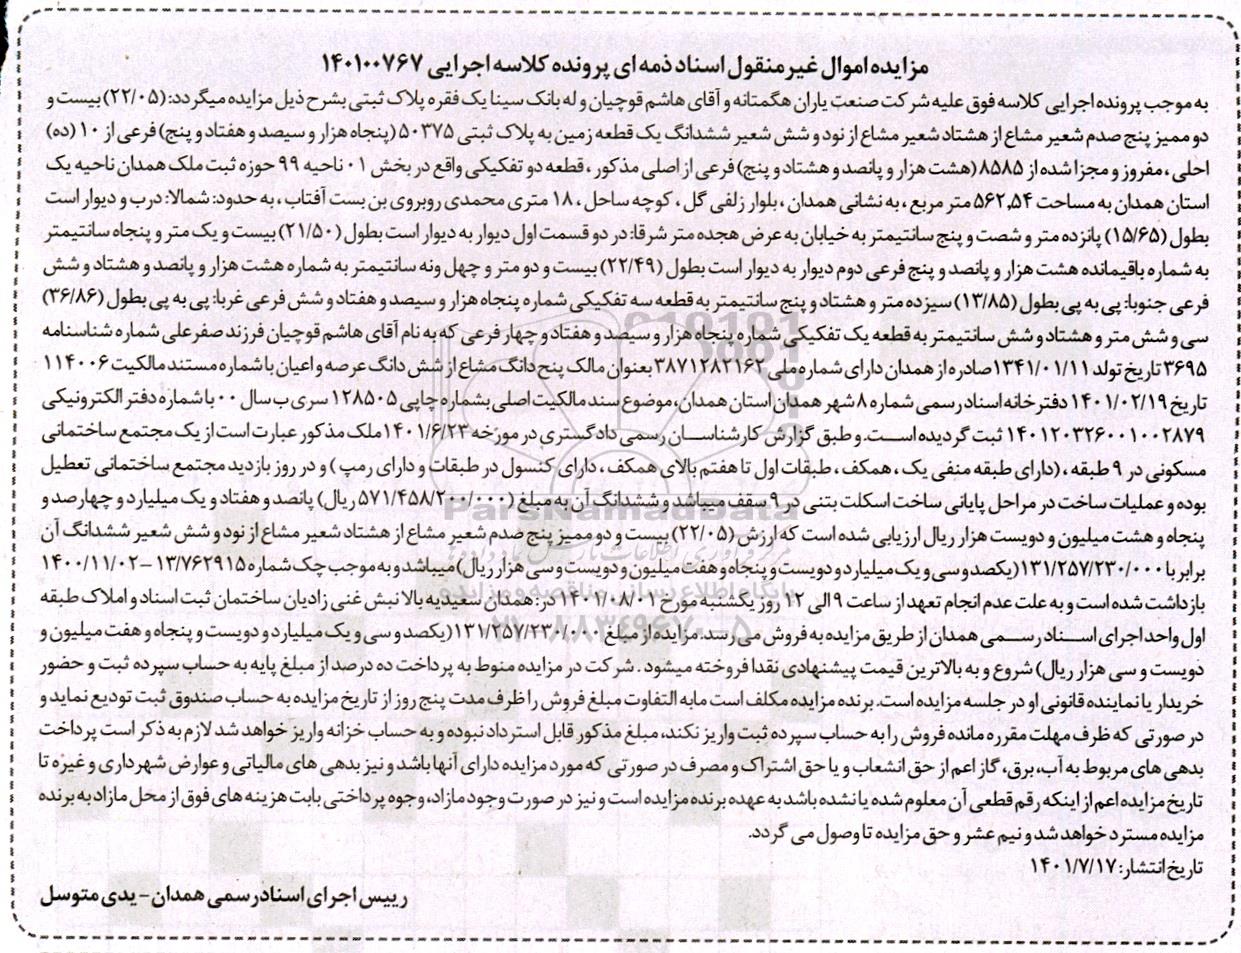 مزایده اموال غیر منقول اسناد ذمه ای پرونده کلاسه اجرایی ۱۴۰۱۰۰۷۶۷
به موجب پرونده اجرایی کلاسه فوق علیه شرکت صنعت یاران هگمتانه و آقای هاشم قوچیان و له بانک سینا یک فقره پلاک ثبتی بشرح ذیل مزایده میگردد: (۲۲/۰۵) بیست و
دو ممیز پنج صدم شعیر مشاع از هشتاد شعیر مشاع از نود و شش شعیر ششدانگ یک قطعه زمین به پلاک ثبتی ۵۰۳۷۵ (پنجاه هزار و سیصد و هفتاد و پنج) فرعی از ۱۰ (ده)
اصلی، مفروز و مجزا شده از ۸۵۸۵ (هشت هزار و پانصد و هشتاد و پنج) فرعی از اصلی مذکور، قطعه دو تفکیکی واقع در بخش ۰۱ ناحیه ۹۹ حوزه ثبت ملک همدان ناحیه یک
استان همدان به مساحت ۵۶۲,۵۴ متر مربع، به نشانی همدان، بلوار زلفی گل، کوچه ساحل، ۱۸ متری محمدی روبروی بن بست آفتاب، به حدود: شمالا: درب و دیوار است
بطول (۱۵/۶۵) پانزده متر و شصت و پنج سانتیمتر به خیابان به عرض هجده متر شرقا: در دو قسمت اول دیوار به دیوار است بطول (۲۱/۵۰) بیست و یک متر و پنجاه سانتیمتر
به شماره باقیمانده هشت هزار و پانصد و پنج فرعی دوم دیوار به دیوار است بطول (۲۲/۴۹) بیست و دو متر و چهل و نه سانتیمتر به شماره هشت هزار و پانصد و هشتاد و شش
فرعی جنوبا: پی به پی بطول (۱۳/۸۵) سیزده متر و هشتاد و پنج سانتیمتر به قطعه سه تفکیکی شماره پنجاه هزار و سیصد و هفتاد و شش فرعی غربا: پی به پی بطول (۳۶/۸۶)
سی و شش متر و هشتاد و شش سانتیمتر به قطعه یک تفکیکی شماره پنجاه هزار و سیصد و هفتاد و چهار فرعی که به نام آقای هاشم قوچیان فرزند صفرعلی شماره شناسنامه
۳۶۹۵ تاریخ تولد ۱۳۴۱/۰۱/۱۱ صادره از همدان دارای شماره ملی ۳۸۷۱۲۸۳۱۶۲ بعنوان مالک پنج دانگ مشاع از شش دانگ عرصه و اعیان با شماره مستند مالکیت ۱۱۴۰۰۶
تاریخ ۱۴۰۱/۰۲/۱۹ دفترخانه اسناد رسمی شماره ۸ شهر همدان استان همدان، موضوع سند مالکیت اصلی بشماره چاپی ۱۲۸۵۰۵ سری ب سال ۰۰ با شماره دفتر الکترونیکی
۱۴۰۱۲۰۳۲۶۰۰۱۰۰۲۸۷۹ ثبت گردیده است. و طبق گزارش کارشناسان رسمی دادگستری در مورخه ۱۴۰۱/۶/۲۳ ملک مذکور عبارت است از یک مجتمع ساختمانی
مسکونی در ۹ طبقه، (دارای طبقه منفی یک، همکف، طبقات اول تا هفتم بالای همکف، دارای کنسول در طبقات و دارای رمپ) و در روز بازدید مجتمع ساختمانی تعطیل
بوده و عملیات ساخت در مراحل پایانی ساخت اسکلت بتنی در ۹ سقف میباشد و ششدانگ آن به مبلغ (۵۷۱/۴۵۸/۲۰۰/۰۰۰ ریال) پانصد و هفتاد و یک میلیارد و چهارصد و
پنجاه و هشت میلیون و دویست هزار ریال ارزیابی شده است که ارزش (۲۲/۰۵) بیست و دو ممیز پنج صدم شعیر مشاع از هشتاد شعیر مشاع از نود و شش شعیر ششدانگ آن
برابر با ۱۳۱/۲۵۷/۲۳۰/۰۰۰ (یکصد و سی و یک میلیارد و دویست و پنجاه و هفت میلیون و دویست و سی هزار ریال) میباشد و به موجب چک شماره ۱۳/۷۶۲۹۱۵ – ۱۴۰۰/۱۱/۰۲
بازداشت شده است و به علت عدم انجام تعهد از ساعت ۹ الی ۱۲ روز یکشنبه مورخ ۱۴۰۱/۰۸/۰۱ در: همدان سعیدیه بالا نبش غنی زادیان ساختمان ثبت اسناد و املاک طبقه
اول واحد اجرای اسناد رسمی همدان از طریق مزایده به فروش می رسد. مزایده از مبلغ ۱۳۱/۲۵۷/۲۳۰/۰۰۰ (یکصد و سی و یک میلیارد و دویست و پنجاه و هفت میلیون و
دویست و سی هزار ریال) شروع و به بالاترین قیمت پیشنهادی نقدا فروخته میشود. شرکت در مزایده منوط به پرداخت ده درصد از مبلغ پایه به حساب سپرده ثبت و حضور
خریدار یا نماینده قانونی او در جلسه مزایده است. برنده مزایده مکلف است مابه التفاوت مبلغ فروش را ظرف مدت پنج روز از تاریخ مزایده به حساب صندوق ثبت تودیع نماید و
در صورتی که ظرف مهلت مقرره مانده فروش را به حساب سپرده ثبت واریز نکند، مبلغ مذکور قابل استرداد نبوده و به حساب خزانه واریز خواهد شد لازم به ذکر است پرداخت
بدهی های مربوط به آب، برق، گاز اعم از حق انشعاب و یا حق اشتراک و مصرف در صورتی که مورد مزایده دارای آنها باشد و نیز بدهی های مالیاتی و عوارض شهرداری و غیره تا
تاریخ مزایده اعم از اینکه رقم قطعی آن معلوم شده یا نشده باشد به عهده برنده مزایده است و نیز در صورت وجود مازاد، وجوه پرداختی بابت هزینه های فوق از محل مازاد به برنده
مزایده مسترد خواهد شد و نیم عشر و حق مزایده تا وصول می گردد.
تاریخ انتشار: ۱۴۰۱/۷/۱۷
رییس اجرای اسناد رسمی همدان - یدی متوسل
ParsNamadData